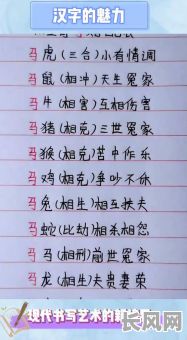 汉字的魅力
马虎(三合)小有情调
马鼠(相冲)天生冤家
马牛(相害)互相伤害
马猪(相克)三世冤家
马猴(相克)苦中作乐
马鸡(相克)争吵不休
马兔(相生)相互扶夫
马蛇(比劫)相杀相怨
马马(相刑)前世冤家
马龙(相生)夫贵妻荣
现代书写艺术的
长风网
cffw.net